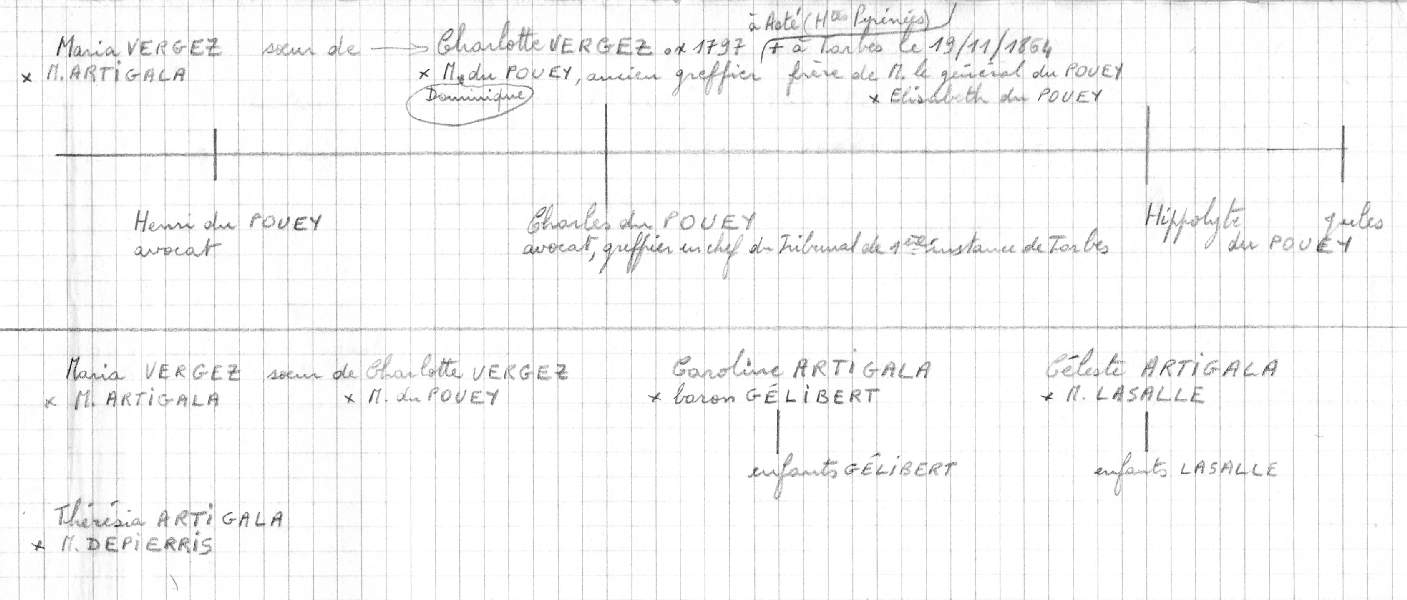 à Asté (Htes Pyrénées)
Maria VERGEZ sœur de → Charlotte VERGEZ °x 1797 († à Tarbes le 19/11/1864
x M. ARTIGALA x M. du POUEY, ancien greffier frère de M. le général du POUEY
Dominique x Elisabeth du POUEY
Henri du POUEY Charles du POUEY Hippolyte Jules
avocat avocat, greffier en chef du Tribunal de 1ère instance de Tarbes du POUEY
Maria VERGEZ sœur de Charlotte VERGEZ Caroline ARTIGALA Céleste ARTIGALA
x M. ARTIGALA x M. du POUEY x baron GÉLIBERT x M. LASALLE
enfants GÉLIBERT enfants LASALLE
Thérésia ARTIGALA
x M. DEPIERRIS